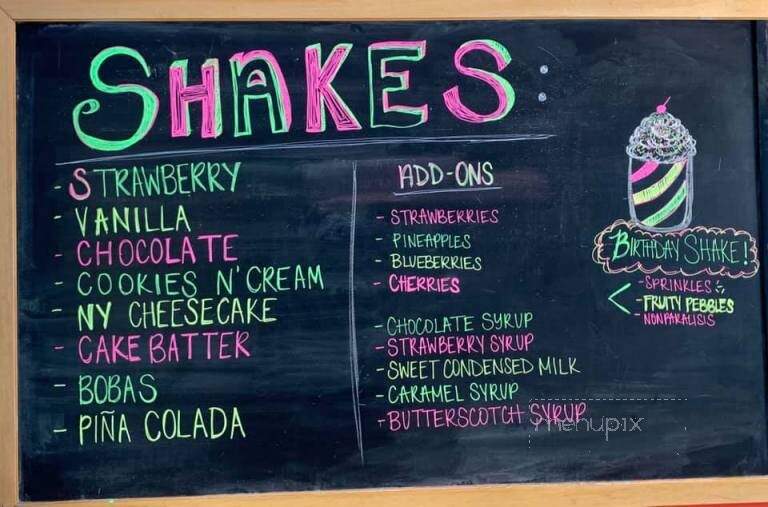 SHAKES:
- STRAWBERRY
- VANILLA
- CHOCOLATE
- COOKIES N' CREAM
- NY CHEESECAKE
- CAKE BATTER
- BOBAS
- PIÑA COLADA
ADD-ONS
- STRAWBERRIES
- PINEAPPLES
- BLUEBERRIES
- CHERRIES
- CHOCOLATE SYRUP
- STRAWBERRY SYRUP
- SWEET CONDENSED MILK
- CARAMEL SYRUP
- BUTTERSCOTCH SYRUP
BIRTHDAY SHAKE!
- SPRINKLES
- FRUITY PEBBLES
- NONPARALISIS
menupix